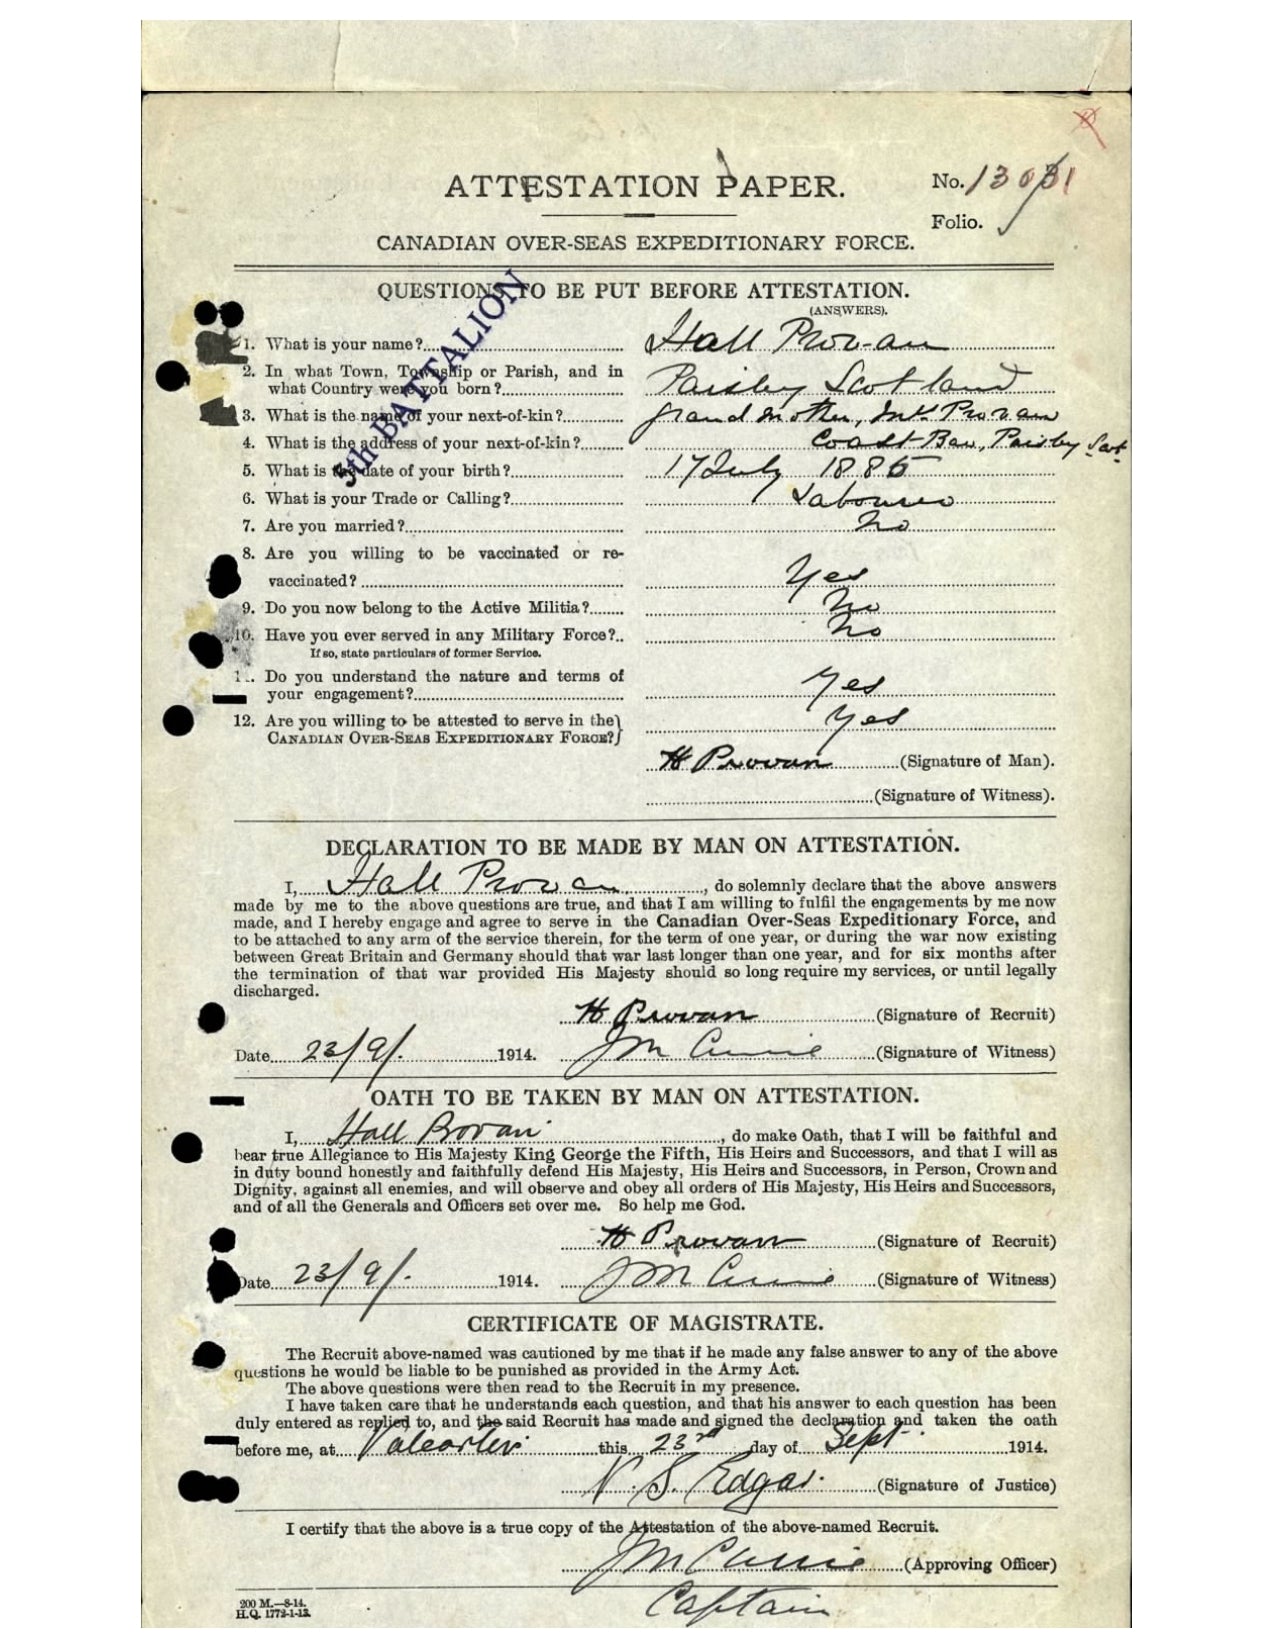 ATTESTATION PAPER.
No. 13031
Folio.
CANADIAN OVER-SEAS EXPEDITIONARY FORCE.
QUESTIONS TO BE PUT BEFORE ATTESTATION.
(ANSWERS).
5th BATTALION
1. What is your name? Hall Provan
2. In what Town, Township or Parish, and in
what Country were you born? Paisley Scotland
3. What is the name of your next-of-kin? Grand mother, Provan
4. What is the address of your next-of-kin? Paisley Scot.
5. What is the date of your birth? 17 July 1885
6. What is your Trade or Calling? Labourer
7. Are you married? No
8. Are you willing to be vaccinated or re-
vaccinated? Yes
9. Do you now belong to the Active Militia? No
10. Have you ever served in any Military Force?.. No
If so, state particulars of former Service.
11. Do you understand the nature and terms of
your engagement? Yes
12. Are you willing to be attested to serve in the
CANADIAN OVER-SEAS EXPEDITIONARY FORCE? Yes
H Provan (Signature of Man).
(Signature of Witness).
DECLARATION TO BE MADE BY MAN ON ATTESTATION.
I, Hall Provan, do solemnly declare that the above answers
made by me to the above questions are true, and that I am willing to fulfil the engagements by me now
made, and I hereby engage and agree to serve in the Canadian Over-Seas Expeditionary Force, and
to be attached to any arm of the service therein, for the term of one year, or during the war now existing
between Great Britain and Germany should that war last longer than one year, and for six months after
the termination of that war provided His Majesty should so long require my services, or until legally
discharged.
H Provan (Signature of Recruit)
Date 23/9/. 1914. JM Currie (Signature of Witness)
OATH TO BE TAKEN BY MAN ON ATTESTATION.
I, Hall Provan, do make Oath, that I will be faithful and
bear true Allegiance to His Majesty King George the Fifth, His Heirs and Successors, and that I will as
in duty bound honestly and faithfully defend His Majesty, His Heirs and Successors, in Person, Crown and
Dignity, against all enemies, and will observe and obey all orders of His Majesty, His Heirs and Successors,
and of all the Generals and Officers set over me. So help me God.
H Provan (Signature of Recruit)
Date 23/9/. 1914. JM Currie (Signature of Witness)
CERTIFICATE OF MAGISTRATE.
The Recruit above-named was cautioned by me that if he made any false answer to any of the above
questions he would be liable to be punished as provided in the Army Act.
The above questions were then read to the Recruit in my presence.
I have taken care that he understands each question, and that his answer to each question has been
duly entered as replied to, and the said Recruit has made and signed the declaration and taken the oath
before me, at Valcartier this 23rd day of Sept. 1914.
S. Edgar. (Signature of Justice)
I certify that the above is a true copy of the Attestation of the above-named Recruit.
JM Currie (Approving Officer)
Captain
200 M.—8-14.
H.Q. 1772-1-13.